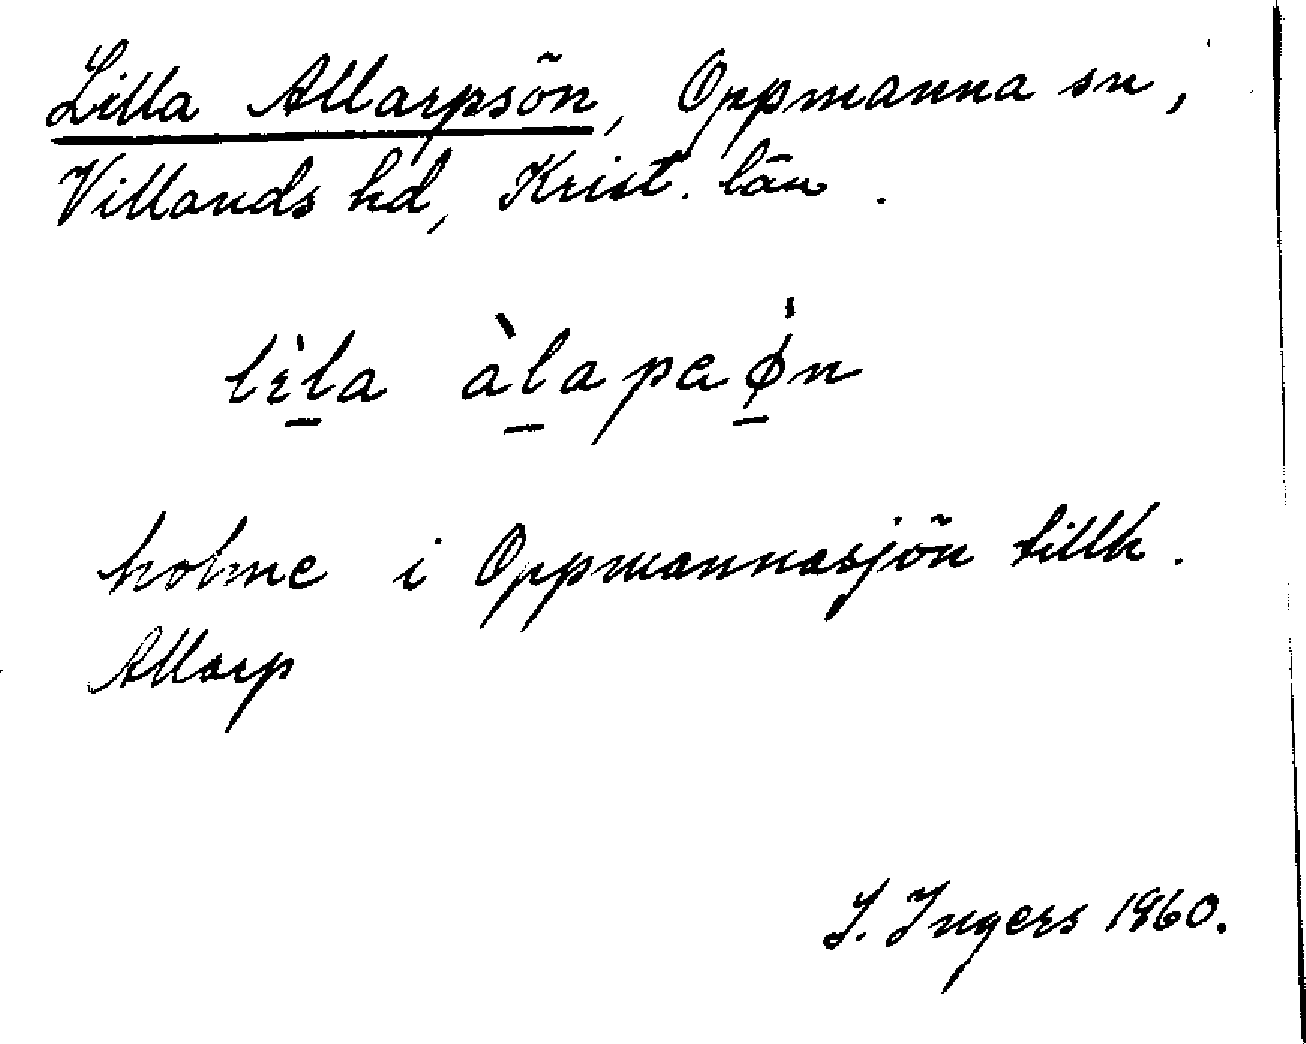 Lilla Allarpsön, Oppmanna sn,
Villands hd, Krist. län.
lìla àlapaøn
holme i Oppmannasjön tillh.
Allarp
I. Ingers 1960.